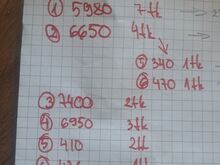 ① 5980 7tk
② 6650 4tk
⑤ 340 1tk
⑥ 470 1tk
③ 7400 2tk
④ 6950 3tk
⑤ 410 2tk